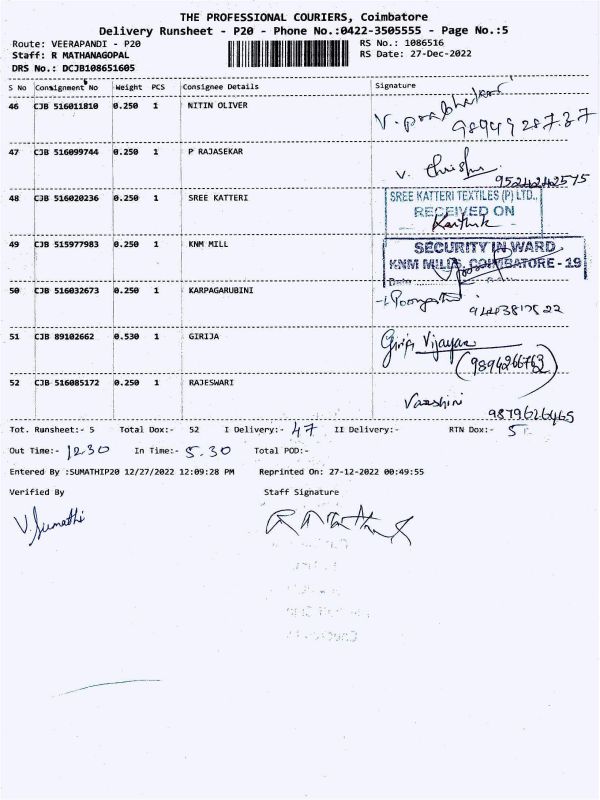 THE PROFESSIONAL COURIERS, Coimbatore
Delivery Runsheet - P20 - Phone No.:0422-3505555 - Page No.:5
Route: VEERAPANDI - P20
RS No.: 1086516
Staff: R MATHANAGOPAL
RS Date: 27-Dec-2022
DRS No.: DCJB108651605
S No Consignment No Weight PCS Consignee Details Signature
46 CJB 516011810 0.250 1 NITIN OLIVER V. prabhakar
47 CJB 516099744 0.250 1 P RAJASEKAR V.
9524242575
48 CJB 516020236 0.250 1 SREE KATTERI SREE KATTERI TEXTILES (P) LTD.,
RECEIVED ON
Karthik
49 CJB 515977983 0.250 1 KNM MILL SECURITY IN WARD
KNM MILLS, COIMBATORE - 19
Date
50 CJB 516032673 0.250 1 KARPAGARUBINI
51 CJB 89102662 0.530 1 GIRIJA Girija Vijayan
(9894266763)
52 CJB 516085172 0.250 1 RAJESWARI Varshini
9879626465
Tot. Runsheet:- 5 Total Dox:- 52 I Delivery:- 47 II Delivery:- RTN Dox:- 5
Out Time:- 12.30 In Time:- 5.30 Total POD:-
Entered By :SUMATHIP20 12/27/2022 12:09:28 PM Reprinted On: 27-12-2022 00:49:55
Verified By Staff Signature
V. Sumathi